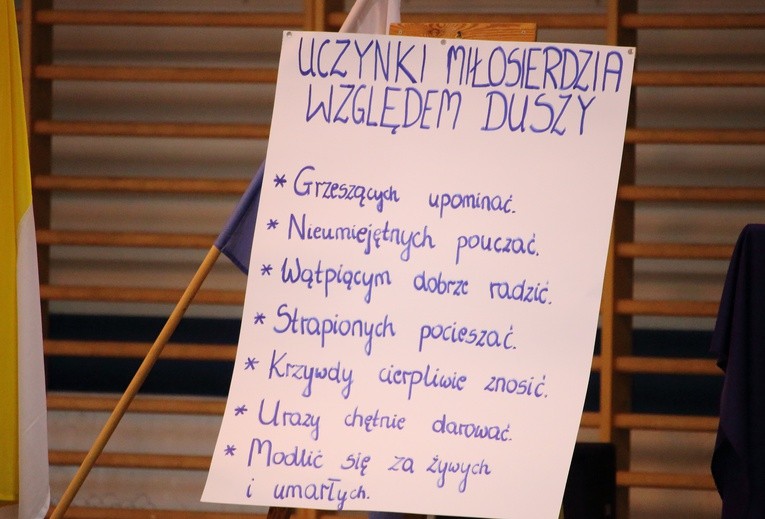 UCZYNKI MIŁOSIERDZIA
WZGLĘDEM DUSZY
* Grzeszących upominać.
* Nieumiejętnych pouczać.
* Wątpiącym dobrze radzić.
* Strapionych pocieszać.
* Krzywdy cierpliwie znosić.
* Urazy chętnie darować.
* Modlić się za żywych
i umarłych.